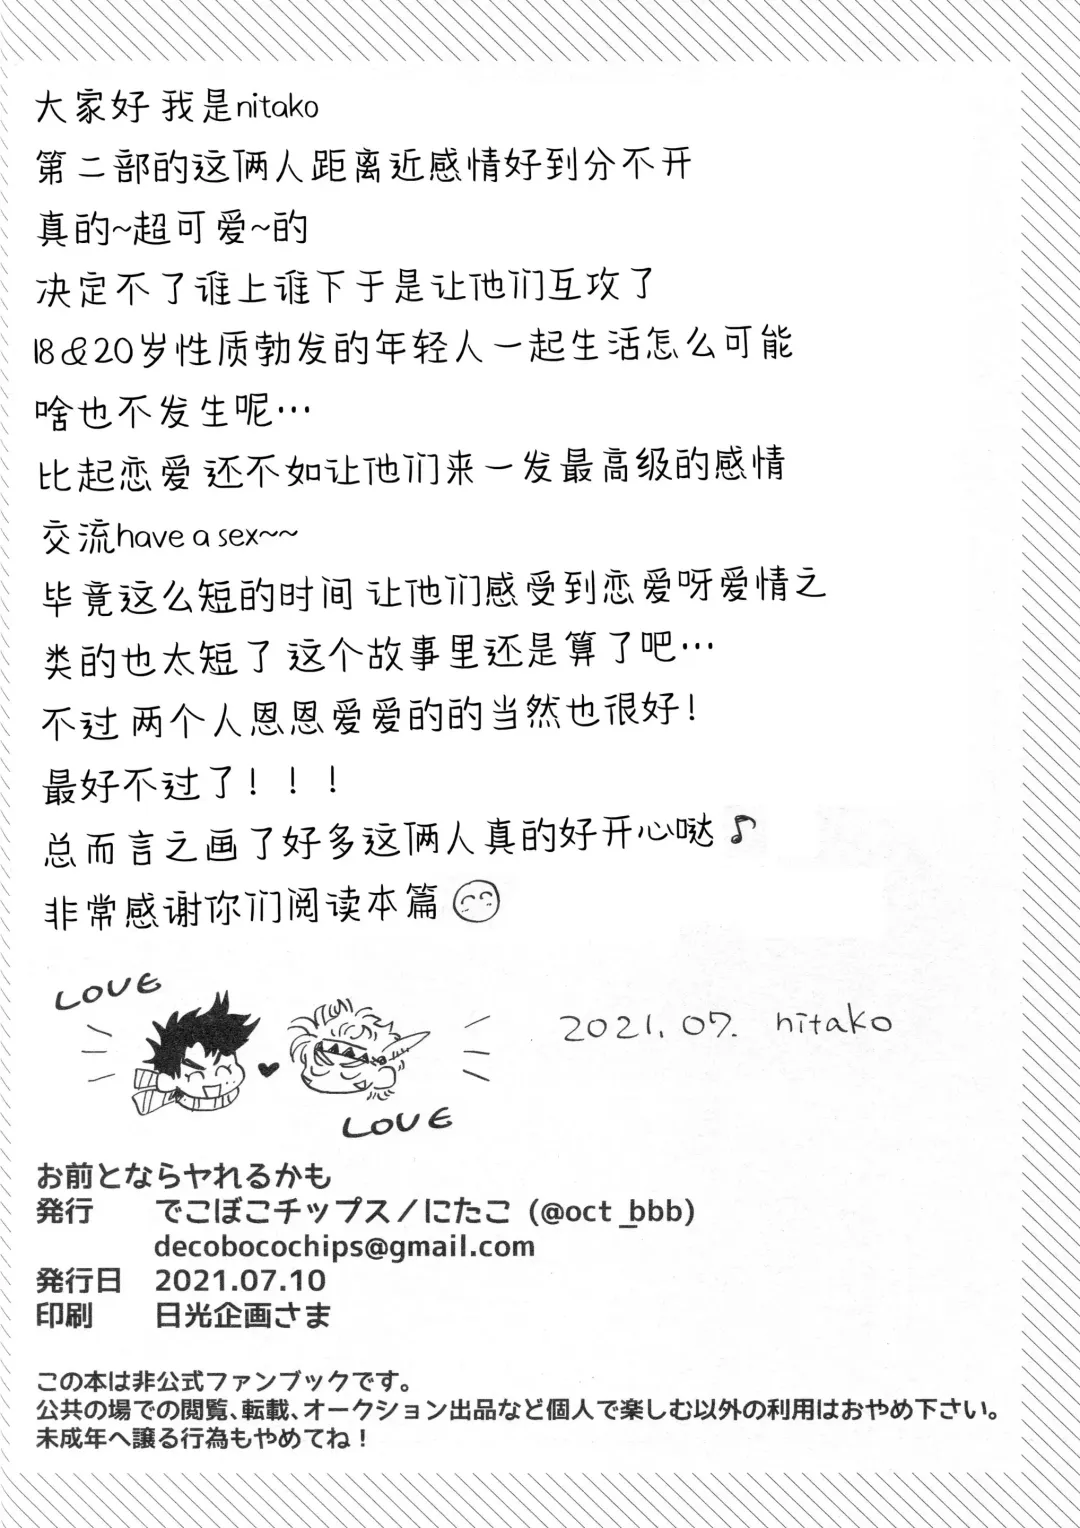 大家好 我是nitako
第二部的这俩人距离近感情好到分不开
真的~超可爱~的
决定不了谁上谁下于是让他们互攻了
18&20岁性质勃发的年轻人一起生活怎么可能
啥也不发生呢…
比起恋爱 还不如让他们来一发最高级的感情
交流have a sex~~
毕竟这么短的时间 让他们感受到恋爱呀爱情之
类的也太短了 这个故事里还是算了吧…
不过 两个人恩恩爱爱的的当然也很好！
最好不过了！！！
总而言之画了好多这俩人真的好开心哒♪
非常感谢你们阅读本篇
LOVE
2021.07. nitako
LOVE
お前とならヤれるかも
発行 でこぼこチップス／にたこ (@oct_bbb)
decobocochips@gmail.com
発行日 2021.07.10
印刷 日光企画さま
この本は非公式ファンブックです。
公共の場での閲覧、転載、オークション出品など個人で楽しむ以外の利用はおやめ下さい。
未成年へ譲る行為もやめてね！